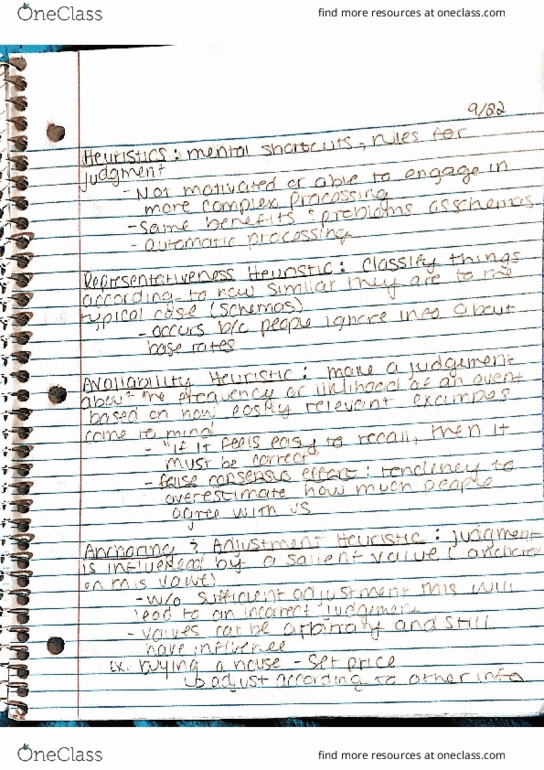 OneClass
find more resources at oneclass.com
9/22
Heuristics: mental shortcuts, rules for
judgment
- Not motivated or able to engage in
more complex processing
- same benefits & problems as schemas
- automatic processing
Representativeness Heuristic: Classify things
according to how similar they are to the
typical case (schemas)
- occurs b/c people ignore info about
base rates
Availability Heuristic: make a judgement
about the frequency or likelihood of an event
based on how easily relevant examples
come to mind
- "if it feels easy to recall, then it
must be correct"
- false consensus effect: tendency to
overestimate how much people
agree with us
Anchoring & Adjustment Heuristic: judgment
is influenced by a salient value (anchor
on this value)
- w/o sufficient adjustment this will
lead to an incorrect judgement
- values can be arbitrary and still
have influence
Ex. buying a house - set price
↳ adjust according to other info
OneClass
find more resources at oneclass.com